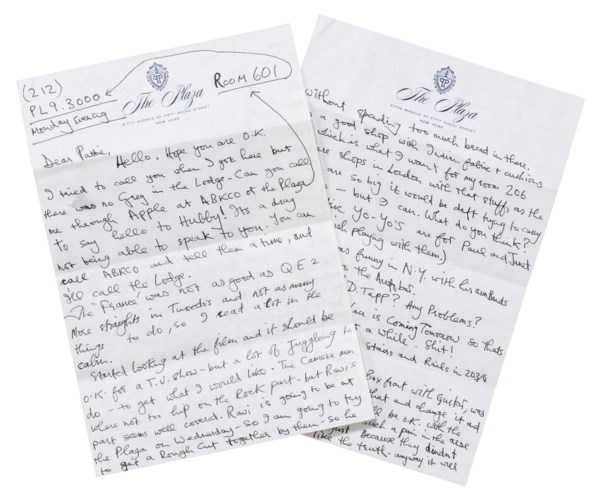 (212)
PL9.3000
Monday Evening
The Plaza
FIFTH AVENUE AT FIFTY-NINTH STREET
NEW YORK
ROOM 601
Dear Pattie,
Hello, Hope you are O.K.
I tried to call you when I got here but
there was no Grey in the Lodge - Can you call
me through Apple at ABKCO or the Plaza
to say hello to Hubby! Its a drag
not being able to speak to you. You can
call ABKCO and tell them a time, and
I'll call the Lodge.
The France was not as good as QE2
More straights in Tuxedos and not as many
things to do, so I read a lot in the
cabin.
Started looking at the film and it should be
O.K. for a T.V. show - but a lot of juggling to
do - to get what I would like. The Camera men
where not to hip on the Rock part - but Ravi's
part seems well covered. Ravi is going to be at
the Plaza on Wednesday - so I am going to try
to get a Rough Cut together by then - so he
The Plaza
FIFTH AVENUE AT FIFTY-NINTH STREET
NEW YORK
without spending too much bread in there.
a good shop with Indian fabric + cushions
which is what I want for my room 206
are shops in London with that stuff, as the
are so big it would be daft trying to carry
- but I can. What do you think?
Yo-Yo's are for Paul and Janet
playing with them)
was funny - N.Y. with his
to the
D. Tapp? Any Problems?
is coming Tomorrow so thats
a while. Shit!
Stairs and Rails in 203/4
front with guitar, was
that and change it and
will be O.K. with the
such a pain in the arse
just because they dindnt
like the truth - anyway it will